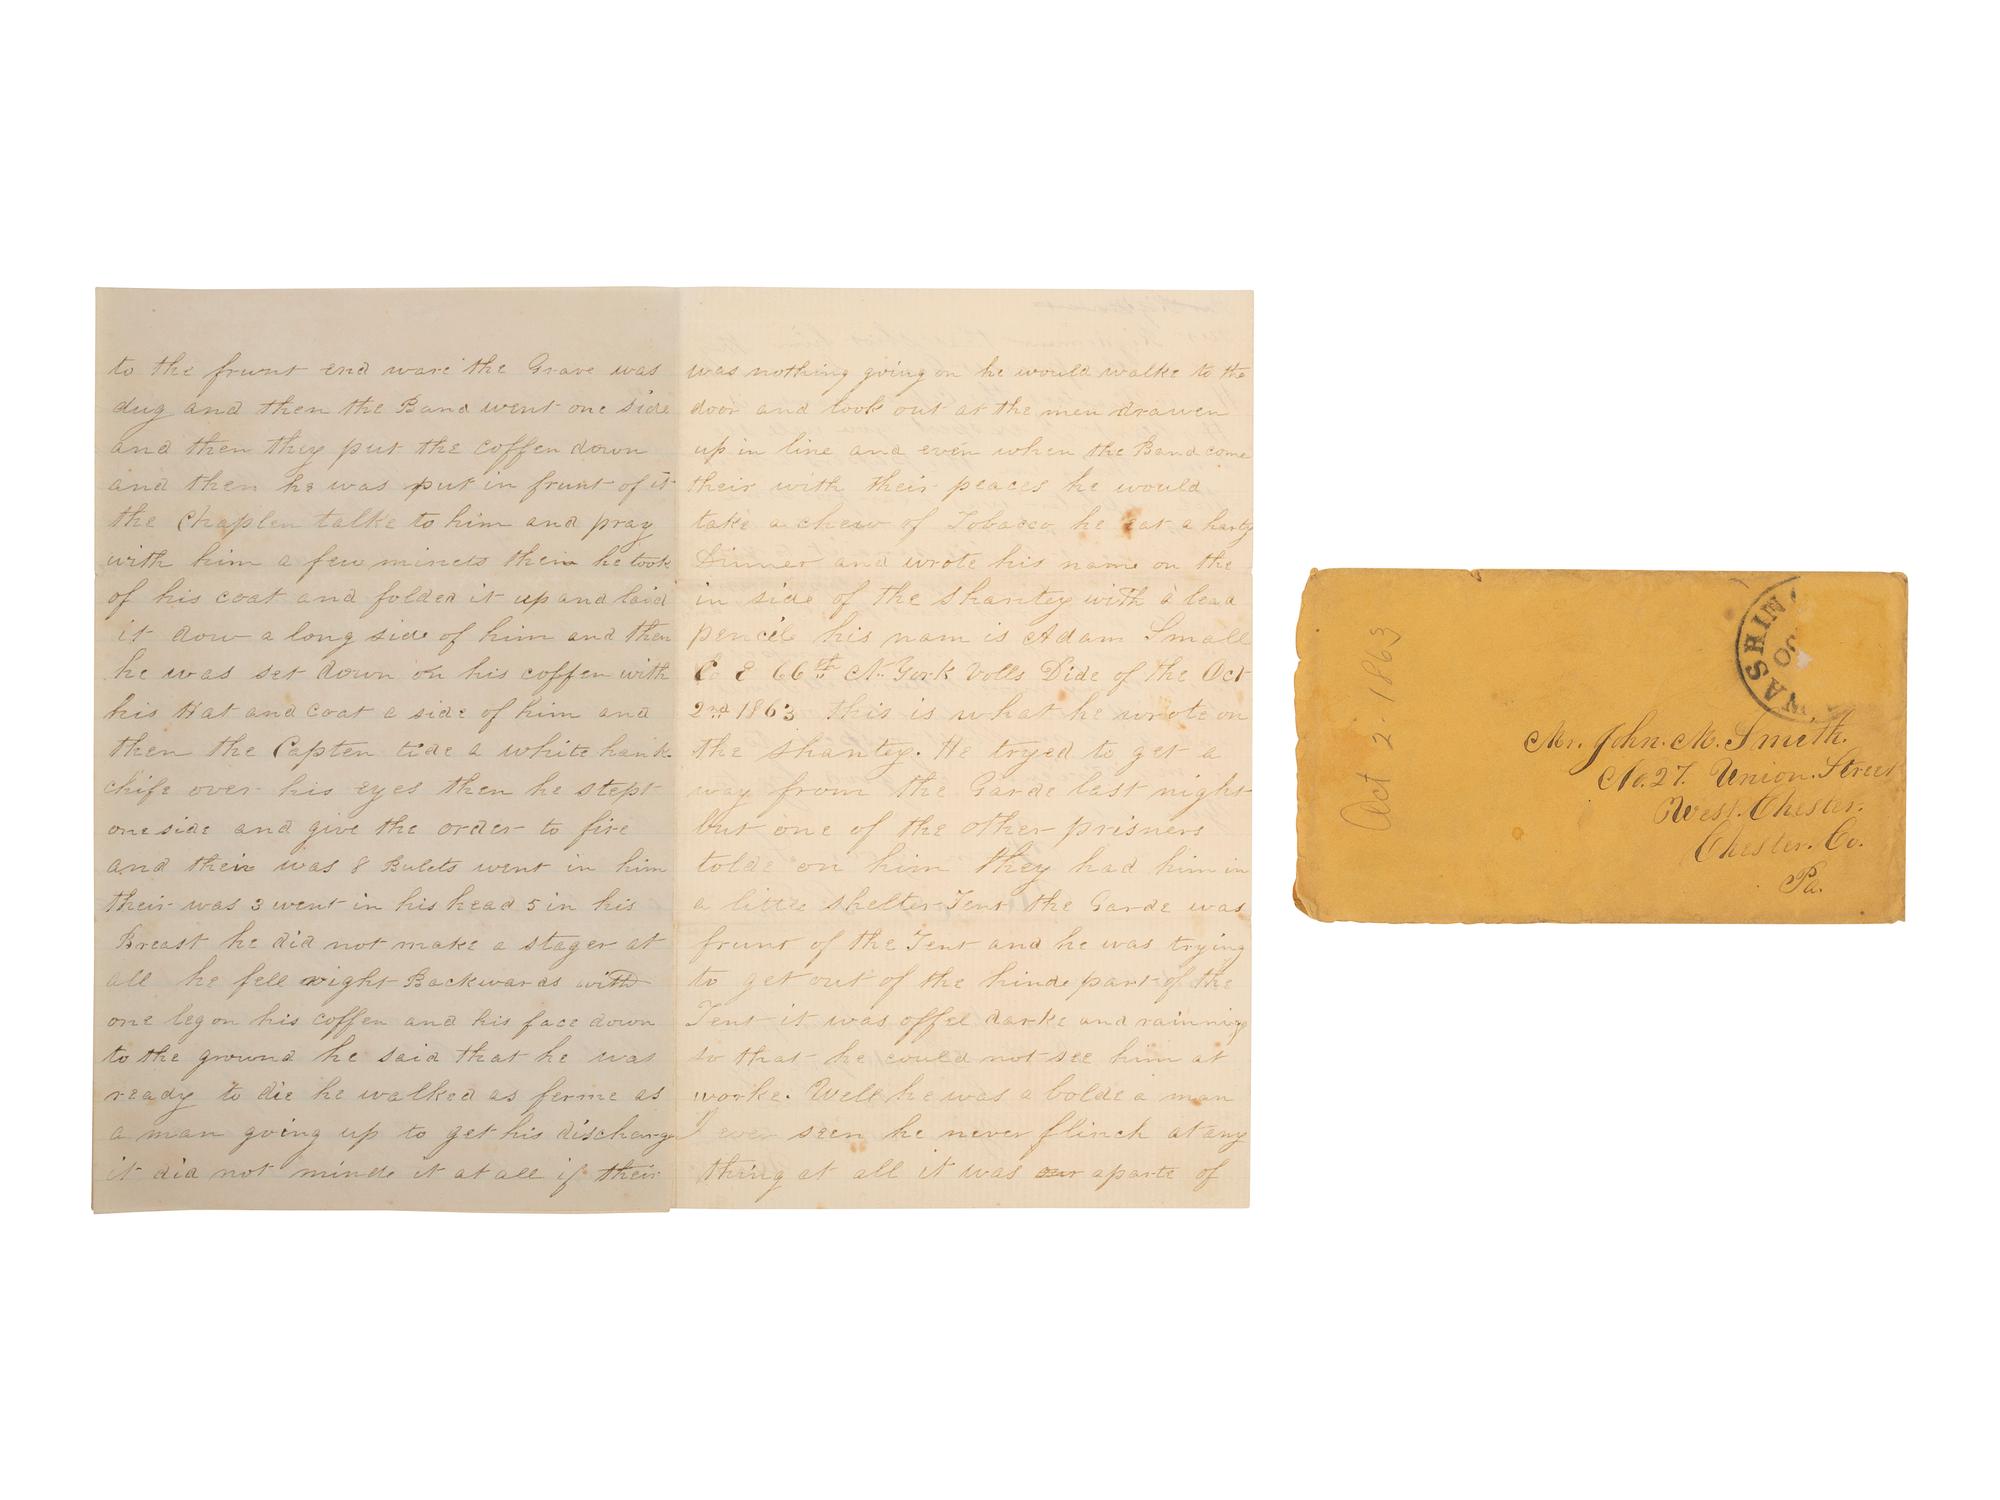 to the frunt end ware the Grave was
dug and then the Band went one side
and then they put the coffen down
and then he was put in frunt of it
the Chaplen talke to him and pray
with him a few minets then he took
of his coat and folded it up and laid
it dow a long side of him and then
he was set down on his coffen with
his Hat and Coat a side of him and
then the Capten tide a white hank
chife over his eyes then he stept
one side and give the order to fire
and their was 8 Bulets went in him
their was 3 went in his head 5 in his
Breast he did not make a stager at
all he fell right Backwards with
one leg on his coffen and his face down
to the ground he said that he was
ready to die he walked as ferme as
a man going up to get his discharge
it did not minde it at all if their
was nothing going on he would walke to the
door and look out at the men drawen
up in line and even when the Band come
their with their peaces he would
take a chew of Tobacco he eat a harty
Dinner and wrote his name on the
in side of the shantey with a lead
pencil his nam is Adam Small
Co E 66th N. York Volls Dide of the Oct
2nd 1863 this is what he wrote on
the shantey. He tryed to get a
way from the Garde last night
but one of the other prisners
tolde on him they had him in
a little shelter Tent the Garde was
frunt of the Tent and he was trying
to get out of the hinde part of the
Tent it was offel darke and rainning
so that he could not see him at
worke. Well he was a bolde a man
I ever seen he never flinch at any
thing at all it was our aparte of
WASHIN
OC
Oct 2-1863
Mr. John. M. Smith.
No. 27. Union. Street
West. Chester.
Chester. Co.
Pa.